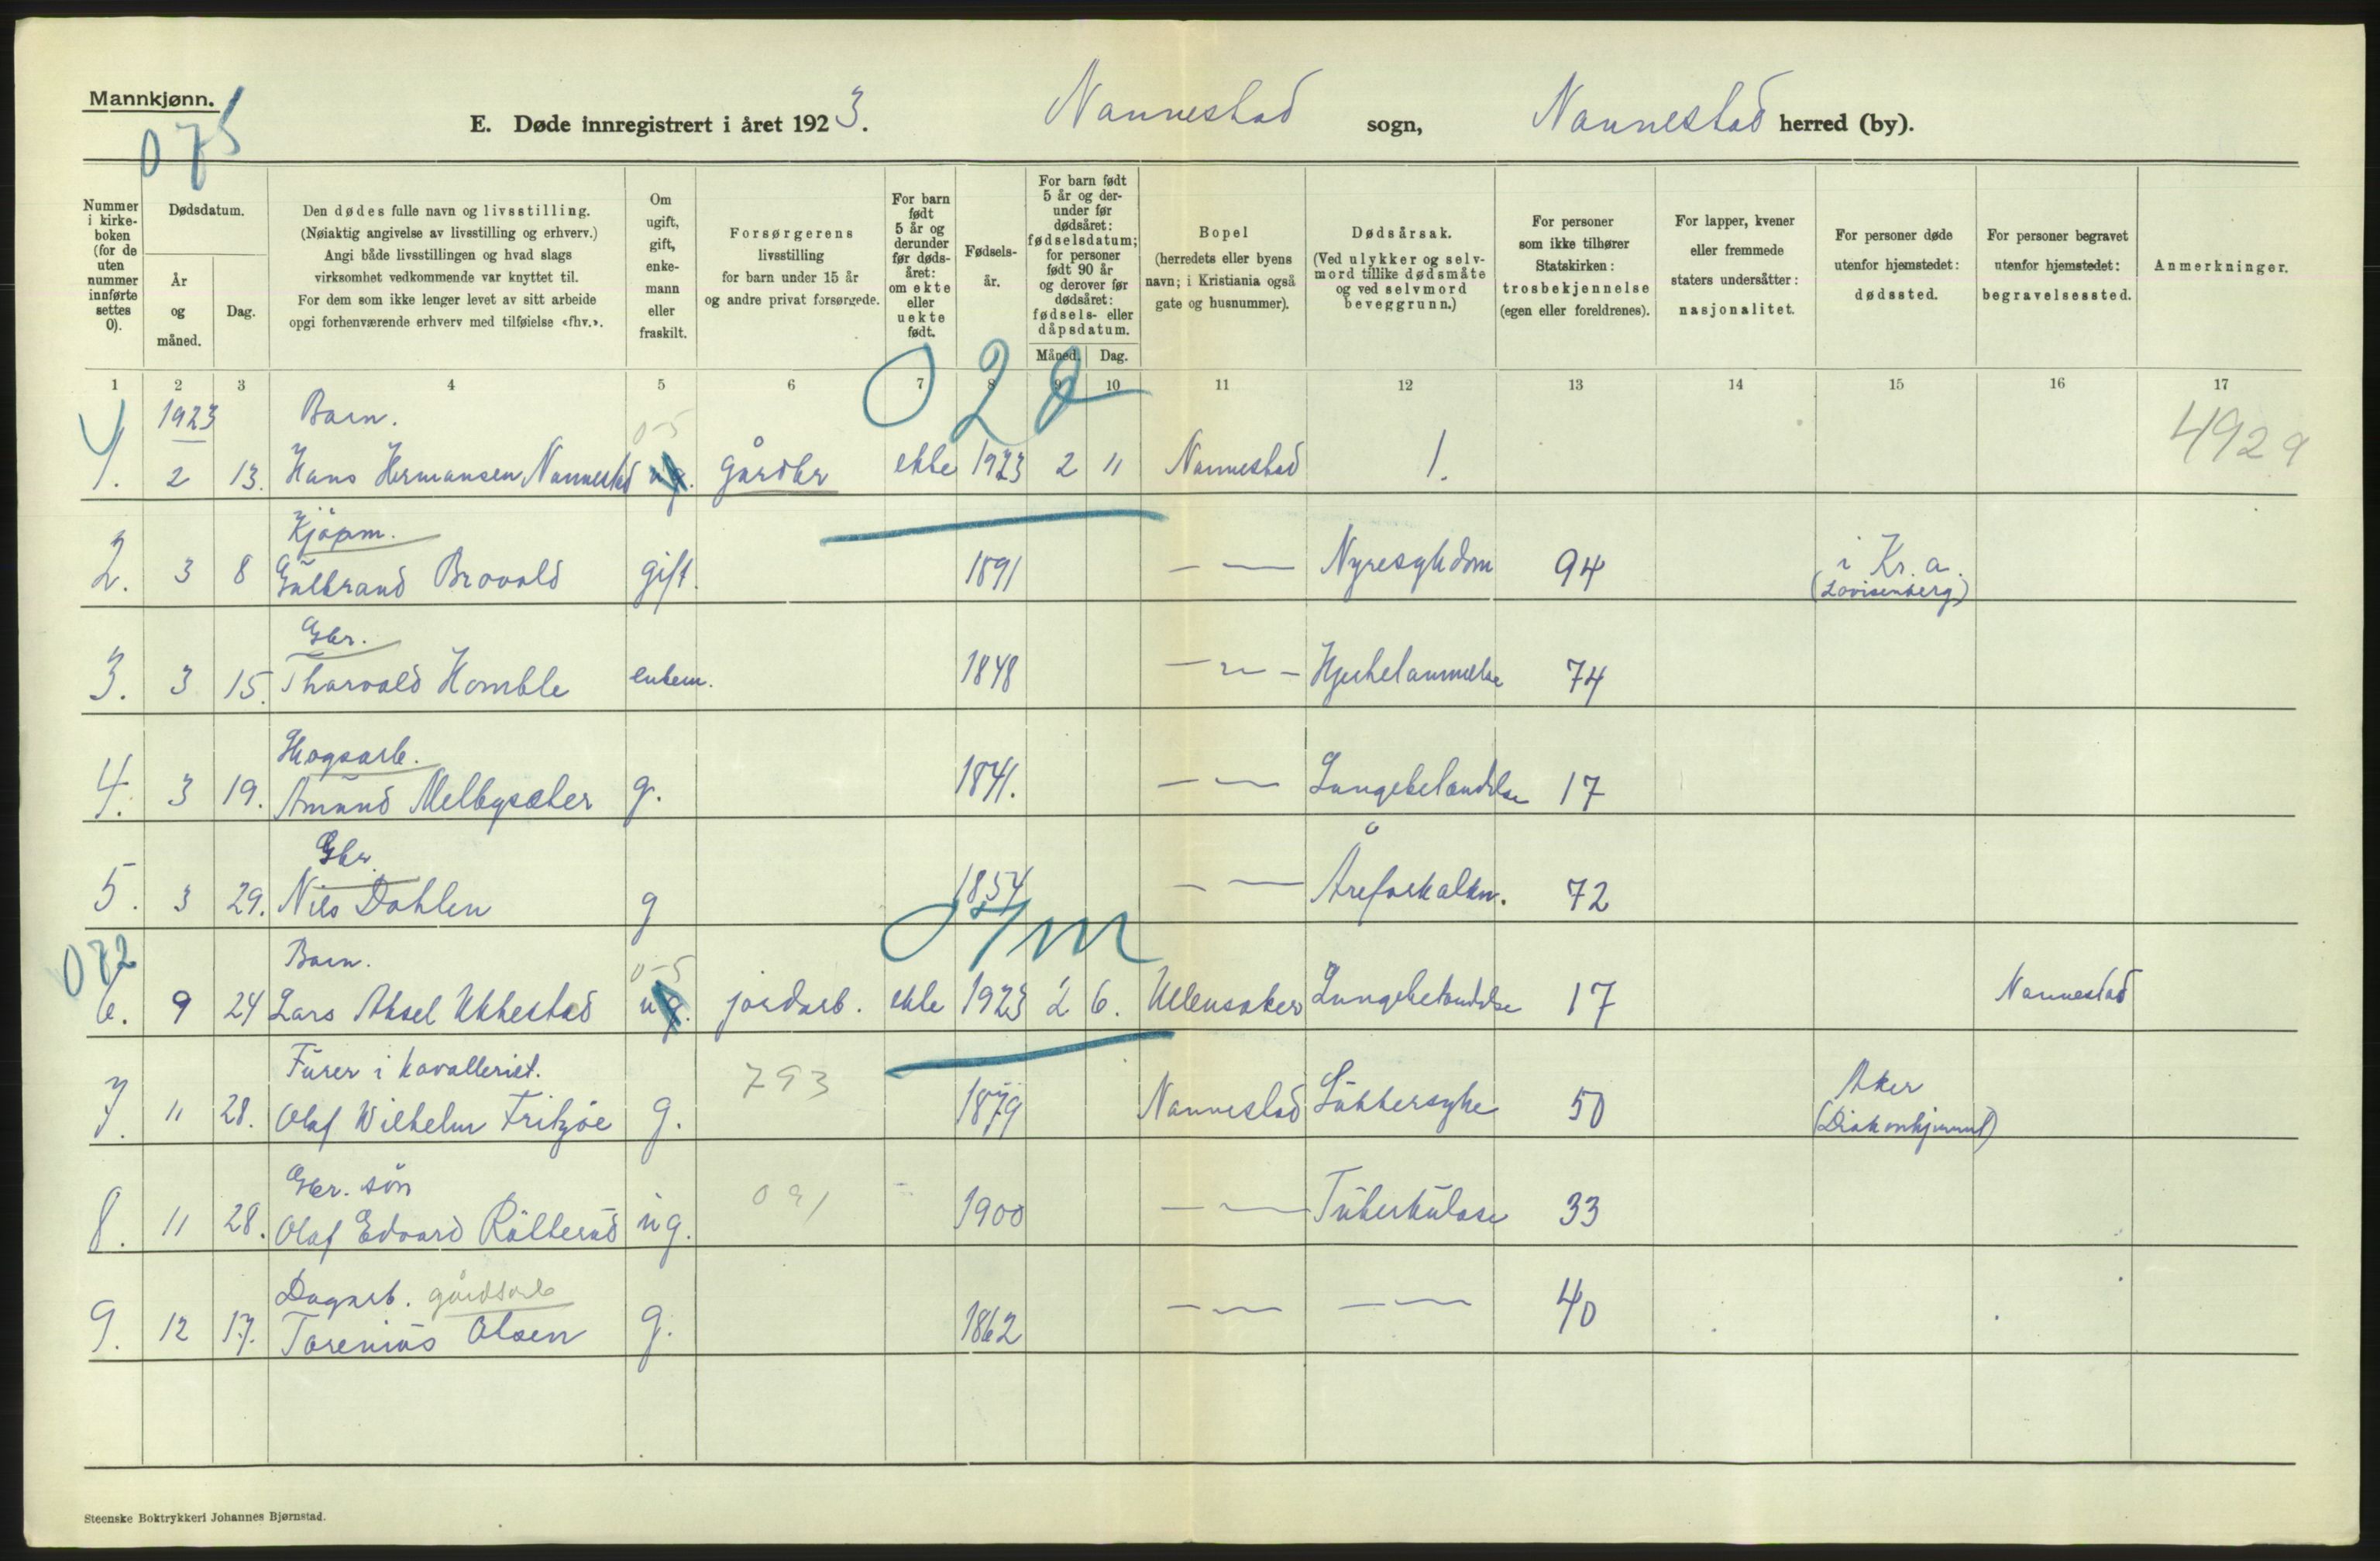 Mannkjønn.
075
E. Døde innregistrert i året 1923.
Nannestad sogn,
Nannestad herred (by).
Nummer i kirke-boken (for de uten nummer innførte settes 0).
Dødsdatum.
År og måned.
Dag.
Den dødes fulle navn og livsstilling.
(Nøiaktig angivelse av livsstilling og erhverv.)
Angi både livsstillingen og hvad slags
virksomhet vedkommende var knyttet til.
For dem som ikke lenger levet av sitt arbeide
opgi forhenværende erhverv med tilføielse «fhv.».
Om ugift, gift, enke-mann eller fraskilt.
Forsørgerens livsstilling for barn under 15 år og andre privat forsørgede.
For barn født 5 år og derunder før døds-året: om ekte eller uekte født.
Fødsels-år.
For barn født 5 år og der-under før dødsåret: fødselsdatum; for personer født 90 år og derover før dødsåret: fødsels- eller dåpsdatum.
Måned. Dag.
Bopel (herredets eller byens navn; i Kristiania også gate og husnummer).
Dødsårsak. (Ved ulykker og selv-mord tillike dødsmåte og ved selvmord beveggrunn.)
For personer som ikke tilhører Statskirken: trosbekjennelse (egen eller foreldrenes).
For lapper, kvener eller fremmede staters undersåtter: nasjonalitet.
For personer døde utenfor hjemstedet: dødssted.
For personer begravet utenfor hjemstedet: begravelsessted.
Anmerkninger.
1 2 3 4 5 6 7 8 9 10 11 12 13 14 15 16 17
1923 Barn. 0-5 4929
1. 2 13. Hans Hermansen Nannestad ug. gårdbr ekte 1923 2 11 Nannestad 1.
Kjøpm.
2. 3 8 Gulbrand Brovold gift. 1891 — — Nyresykdom 94 i Kr.a. (Lovisenberg)
Gbr.
3. 3 15. Tharvald Homble enkem. 1848 — „ — 74
Skogsarb.
4. 3 19. Amund Melbysæter g. 1841. — — Lungebetændelse 17
Gbr.
5. 3 29. Nils Dahlen g 1854 — — Åreforkalkn. 72
072 Barn. 0-5
6. 9 24 Lars Aksel Ukkestad ug. jordarb. ekte 1923 2 6. Ullensaker Lungebetændelse 17 Nannestad
Furer i kavalleriet. 793
7. 11 28. Olaf Wilhelm Fritzøe g. 1879 Nannestad Sukkersyke 50 Aker (Diakonhjemmet)
Gbr. søn 091
8. 11 28. Olaf Edvard Rålkerud ug. 1900 — — Tuberkulose 33
Dagarb. gårdsarb
9. 12 17. Torenius Olsen g. 1862 — — — — 40
Steenske Boktrykkeri Johannes Bjørnstad.